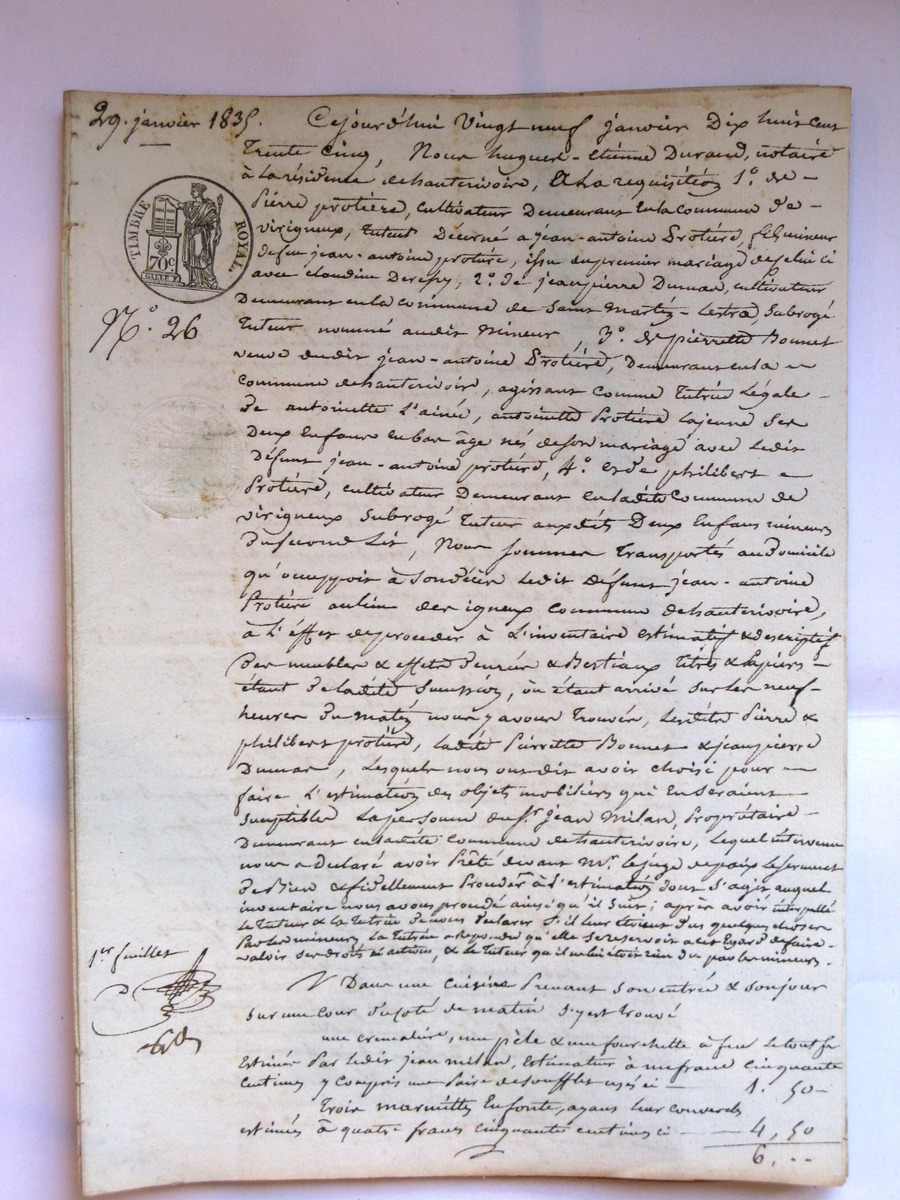 29. janvier 1835. Cejourd'hui Vingt neuf janvier Dix huit cent
trente cinq, Nous hugues-Etienne Durand, notaire
à la résidence de hauterivoire, A la requisition 1º. de
pierre protière, cultivateur Demeurant en la commune de
virigneux, tuteur Décerné a jean-antoine Protière, fils mineur
defeu jean-antoine protière, issu du premier mariage de celui ci
avec claudine 2º. de jeanpierre Dumas, cultivateur
Demeurant en la commune de Saint Martin-Lestra, Subrogé
tuteur nommé audit Mineur, 3º. de pierrette Bonnet
veuve dudit jean-antoine Protière, Demeurant en la
commune de hauterivoire, agissant comme tutrice Légale
de antoinette L'ainée, antoinette Protière Lajeune Ses
Deux Enfans en bas âge nés de Son mariage avec Ledit
Défunt jean-antoine protière, 4º. et de philibert
Protière, cultivateur Demeurant en ladite Commune de
virigneux Subrogé tuteur auxdits Deux Enfans mineurs
du Second Lit, Nous Sommes transportés au Domicile
qu'occuppoit à Son décès Ledit Défunt jean-antoine
Protière au lieu des igneux commune de hauterivoire,
à L'effet de proceder à L'inventaire estimatif & descriptif
Des meubles & effets Denrées & Bestiaux titres & papiers
étant de ladite Succession, où étant arrivé Sur les neuf
heures du matin nous y avons trouvés, Lesdits Pierre &
philibert protière, Ladite Pierrette Bonnet & jeanpierre
Dumas, Lesquels nous ont dit avoir choisi pour
faire L'estimation des objets mobiliers qui en Seraient
Susceptibles La personne du Sr. jean Milan, Propriétaire
Demeurant en ladite Commune de hauterivoire, Lequel intervenu
nous a Déclaré avoir Prêté devant Mr. Le juge de paix Le Serment
de Bien & fidellement Proceder à L'estimation dont S'agit auquel
inventaire nous avons procédé ainsi qu'il Suit; après avoir interpellé
Le tuteur & La tutrice de nous déclarer S'il leur étoient dus quelques choses
Par les mineurs, La tutrice a Repondu qu'elle Se reservoit a cet Egard de faire
valoir Ses droits & actions, & Le tuteur qu'il ne lui étoit rien du par les mineurs.
Dans une cuisine Prenant Son entrée & Son jour
Sur une cour du côté de matin S'y est trouvé
une cremaliere, une pèle & une fourchette à feu Le tout
Estimés Par Ledit jean milan, Estimateur à un franc cinquante
centimes y Compris une Paire de Soufflet usés ci — 1. 50
Trois marmittes En fonte, ayans leur couvercles
estimés à quatre francs cinquante centimes ci — 4, 50
6. ..
TIMBRE ROYAL
70c
Nº. 26
1er feuillet
D